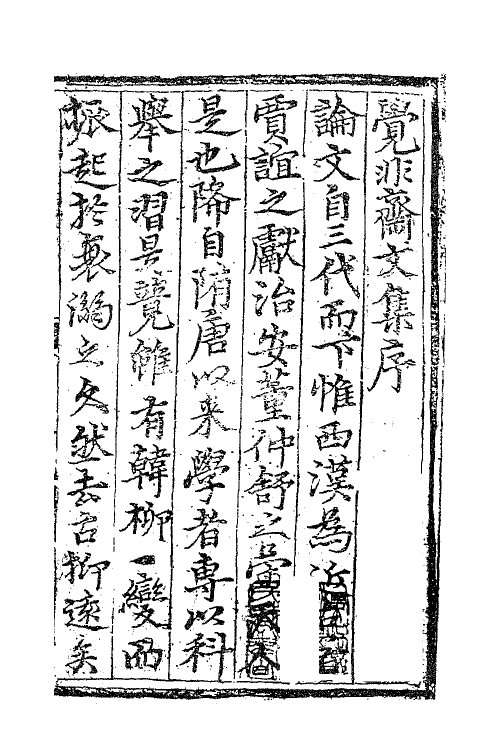 覺非齋文集序
論文自三代而下惟西漢為近
賈誼之獻治安董仲舒之
是也降自隋唐以來學者專以科
舉之習是競雖有韓柳一變而
振起於襄溺之久然去古抑遠矣